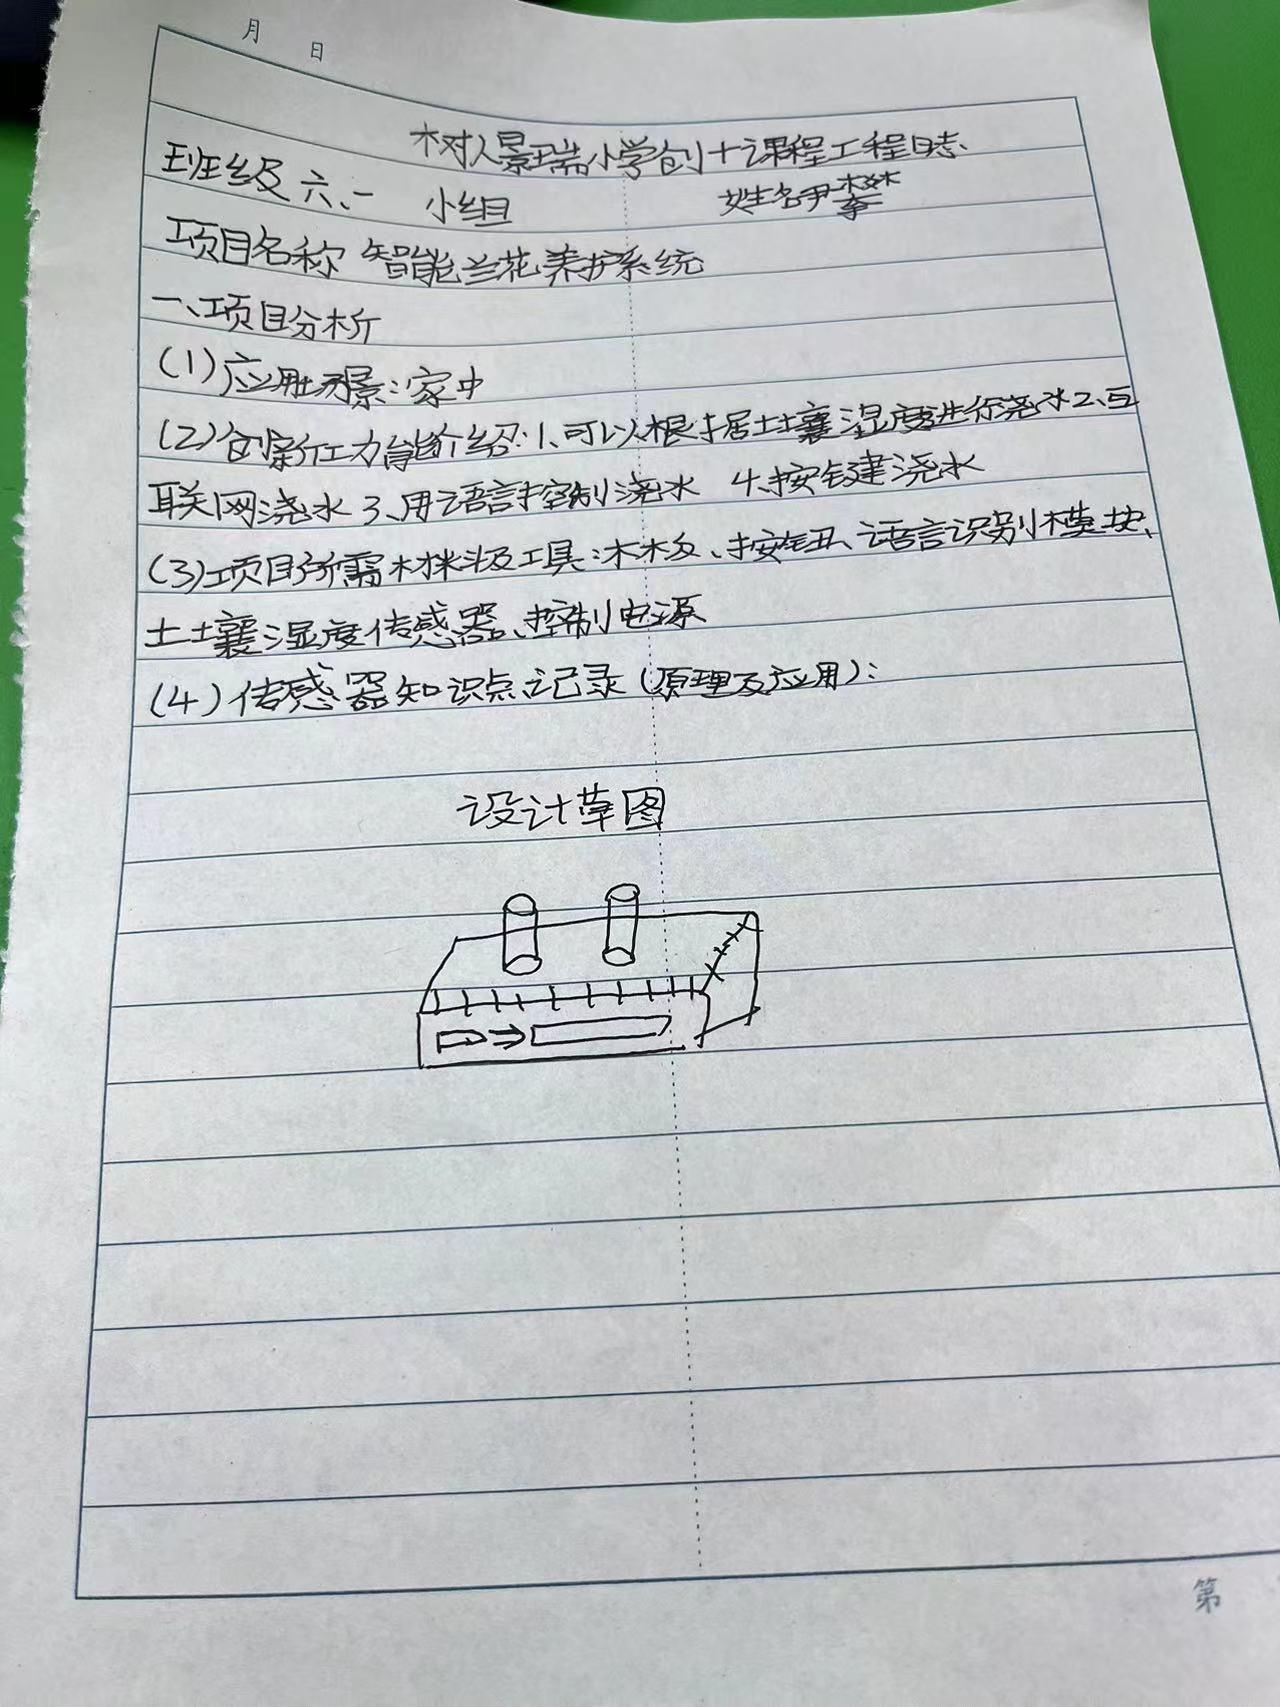 月 日
树人景瑞小学创十课程工程日志
班级 六、一 小组 姓名尹
项目名称 智能兰花养护系统
一、项目分析
(1)应用场景:家中
(2)创新工力能介绍:1.可以根据土壤湿度进行浇水2、互
联网浇水 3、用语言控制浇水 4、按键浇水
(3)项目所需材料及工具:木板、按钮、语言识别模块、
土壤湿度传感器、控制电源
(4)传感器知识点记录(原理及应用):
设计草图
第